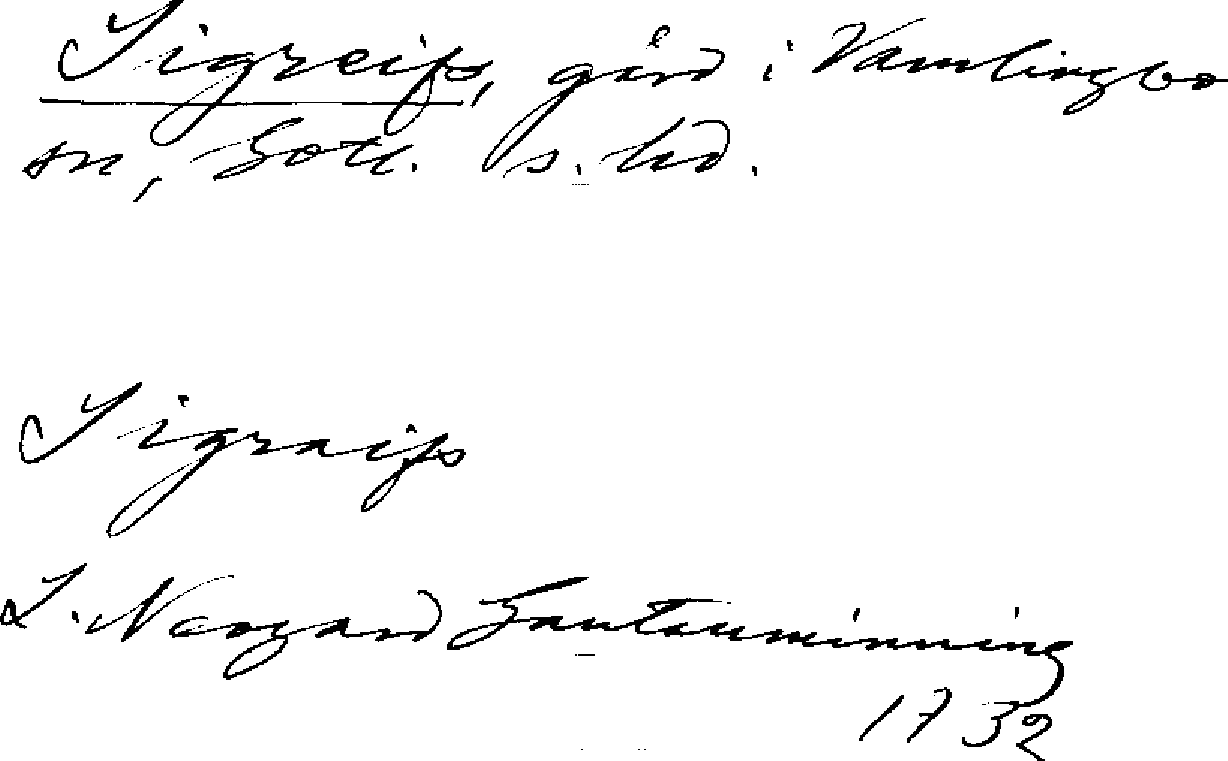 Sigreifs, gård i Vamlingbo
sn, Gotl. s. hd.
Sigraifs
L. Navgard Gautauminning
1732